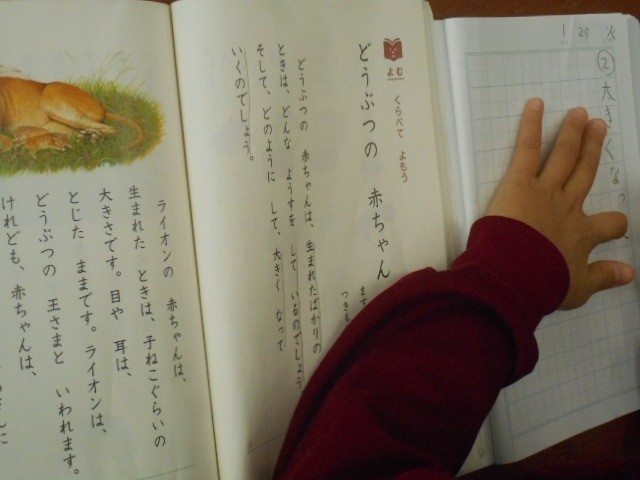 1 20 火
② 大きくなっ
よむ
くらべて よもう
どうぶつの 赤ちゃん
ます
つきも
どうぶつの 赤ちゃんは、生まれたばかりの
ときは、どんな ようすを して いるのでしょう
そして、どのように して、大きく なって
いくのでしょう。
ライオンの 赤ちゃんは、
生まれた ときは、子ねこぐらいの
大きさです。目や 耳は、
とじた ままです。ライオンは、
どうぶつの 王さまと いわれます。
けれども、赤ちゃんは、